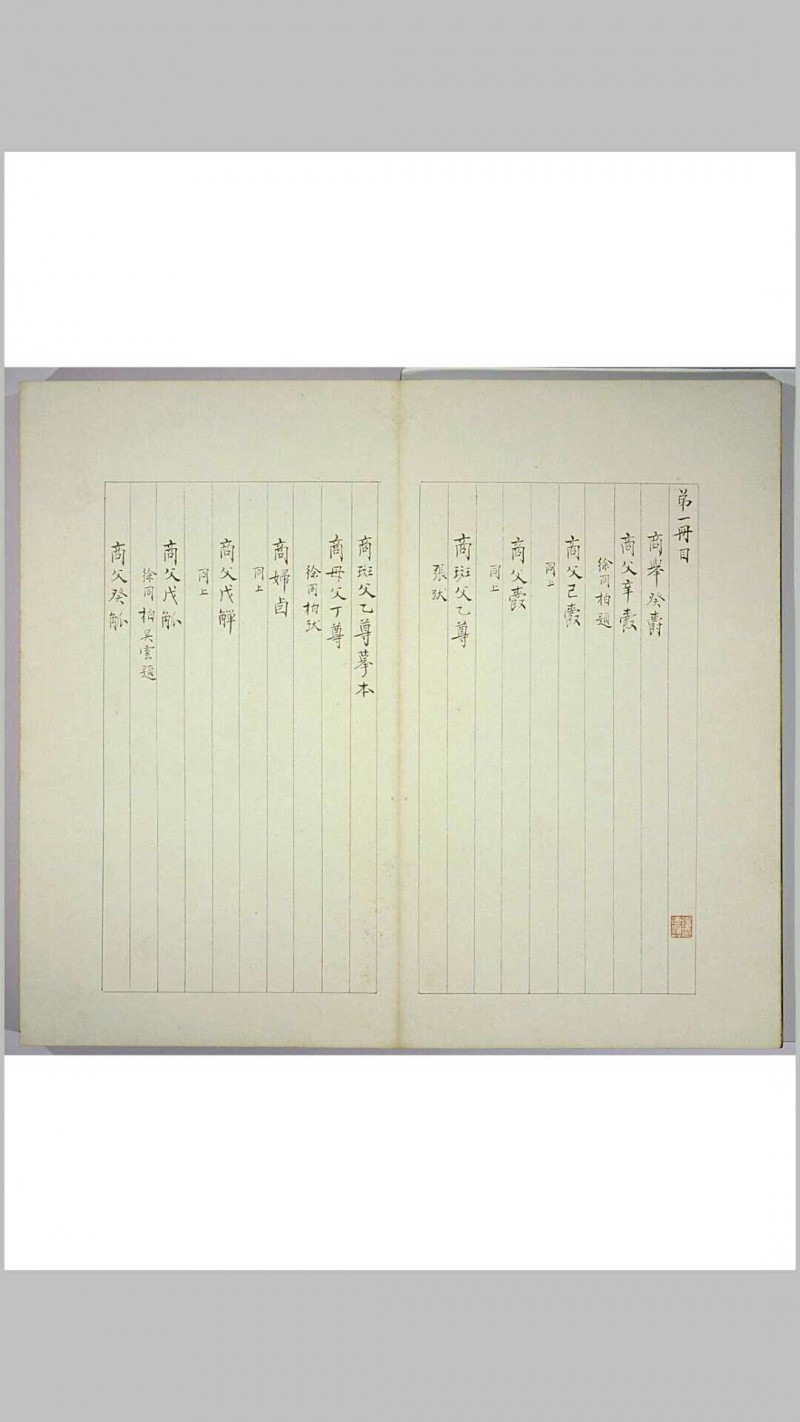 弟一冊目
商舉癸爵
商父辛爵
徐同柏題
商父己爵
同上
商父爵
同上
商斑父乙尊
張跋
商斑父乙尊摹本
商母父丁尊
徐同柏跋
商婦卣
同上
商父戊觶
同上
商父戊觚
徐同柏吴雲題
商父癸觚